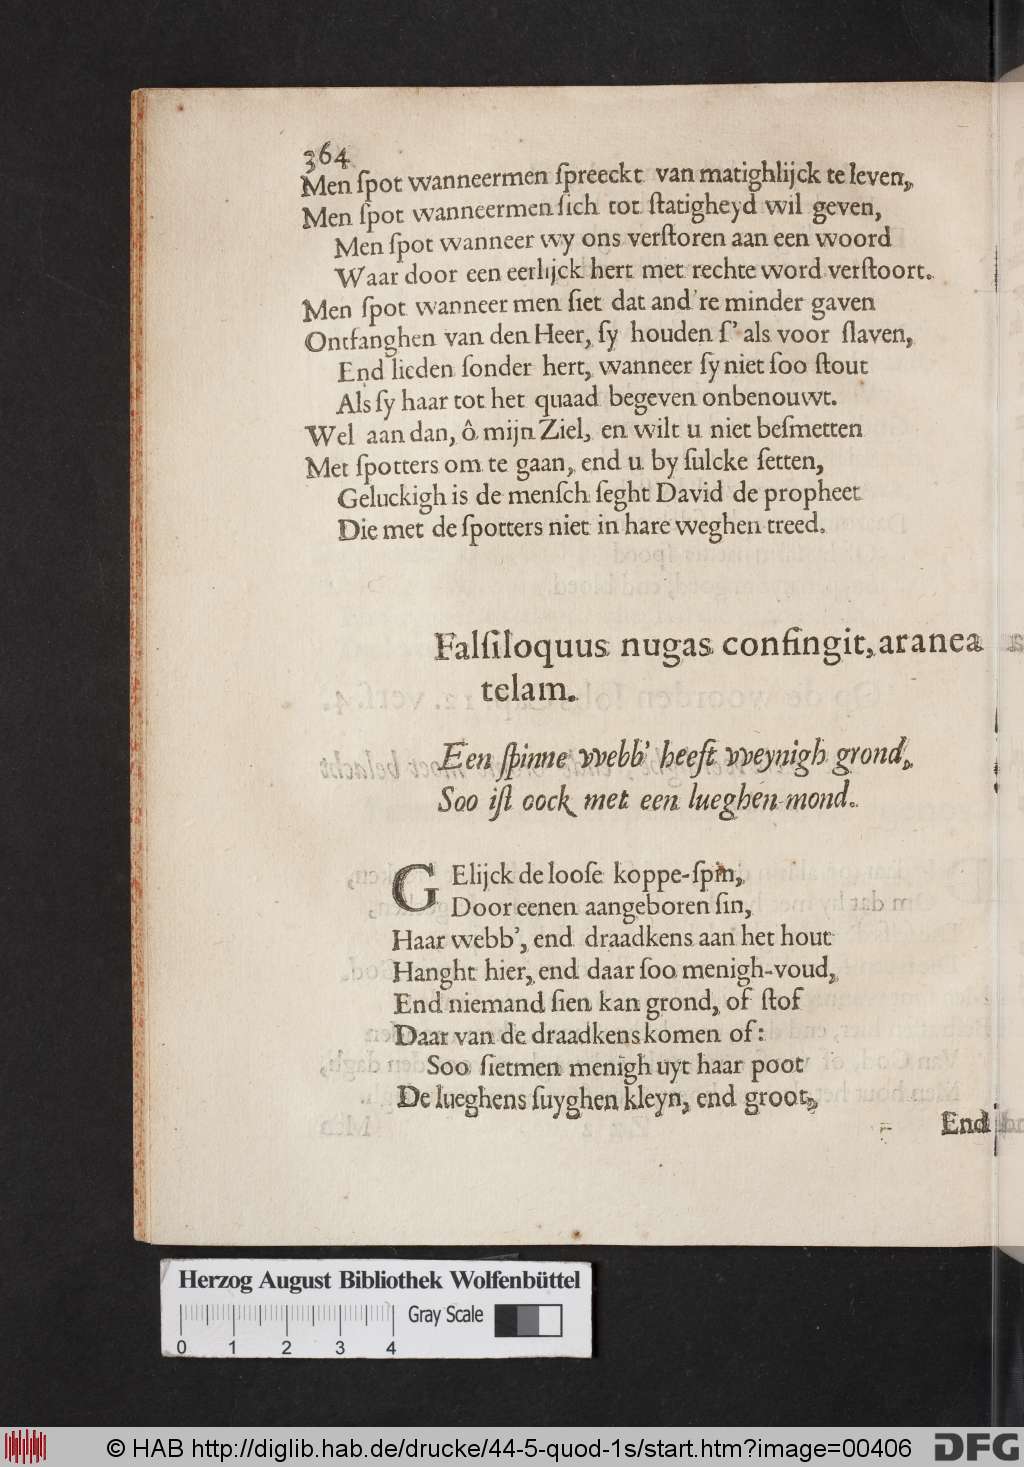 364
Men ſpot wanneermen ſpreeckt van matighlijck te leven,
Men ſpot wanneermen ſich tot ſtatigheyd wil geven,
Men ſpot wanneer wy ons verſtoren aan een woord
Waar door een eerlijck hert met rechte word verſtoort.
Men ſpot wanneer men ſiet dat and're minder gaven
Ontfanghen van den Heer, ſy houden ſ' als voor ſlaven,
End lieden ſonder hert, wanneer ſy niet ſoo ſtout
Als ſy haar tot het quaad begeven onbenouwt.
Wel aan dan, ô mijn Ziel, en wilt u niet beſmetten
Met ſpotters om te gaan, end u by ſulcke ſetten,
Geluckigh is de menſch ſeght David de propheet
Die met de ſpotters niet in hare weghen treed.
Falſiloquus nugas confingit, aranea
telam.
Een ſpinne vvebb' heeft vveynigh grond,
Soo iſt oock met een lueghen-mond.
GElijck de looſe koppe-ſpin,
Door eenen aangeboren ſin,
Haar webb', end draadkens aan het hout
Hanght hier, end daar ſoo menigh-voud,
End niemand ſien kan grond, of ſtof
Daar van de draadkens komen of:
Soo ſietmen menigh uyt haar poot
De lueghens ſuyghen kleyn, end groot,
End
Herzog August Bibliothek Wolfenbüttel
Gray Scale
0 1 2 3 4
© HAB http://diglib.hab.de/drucke/44-5-quod-1s/start.htm?image=00406
DFG